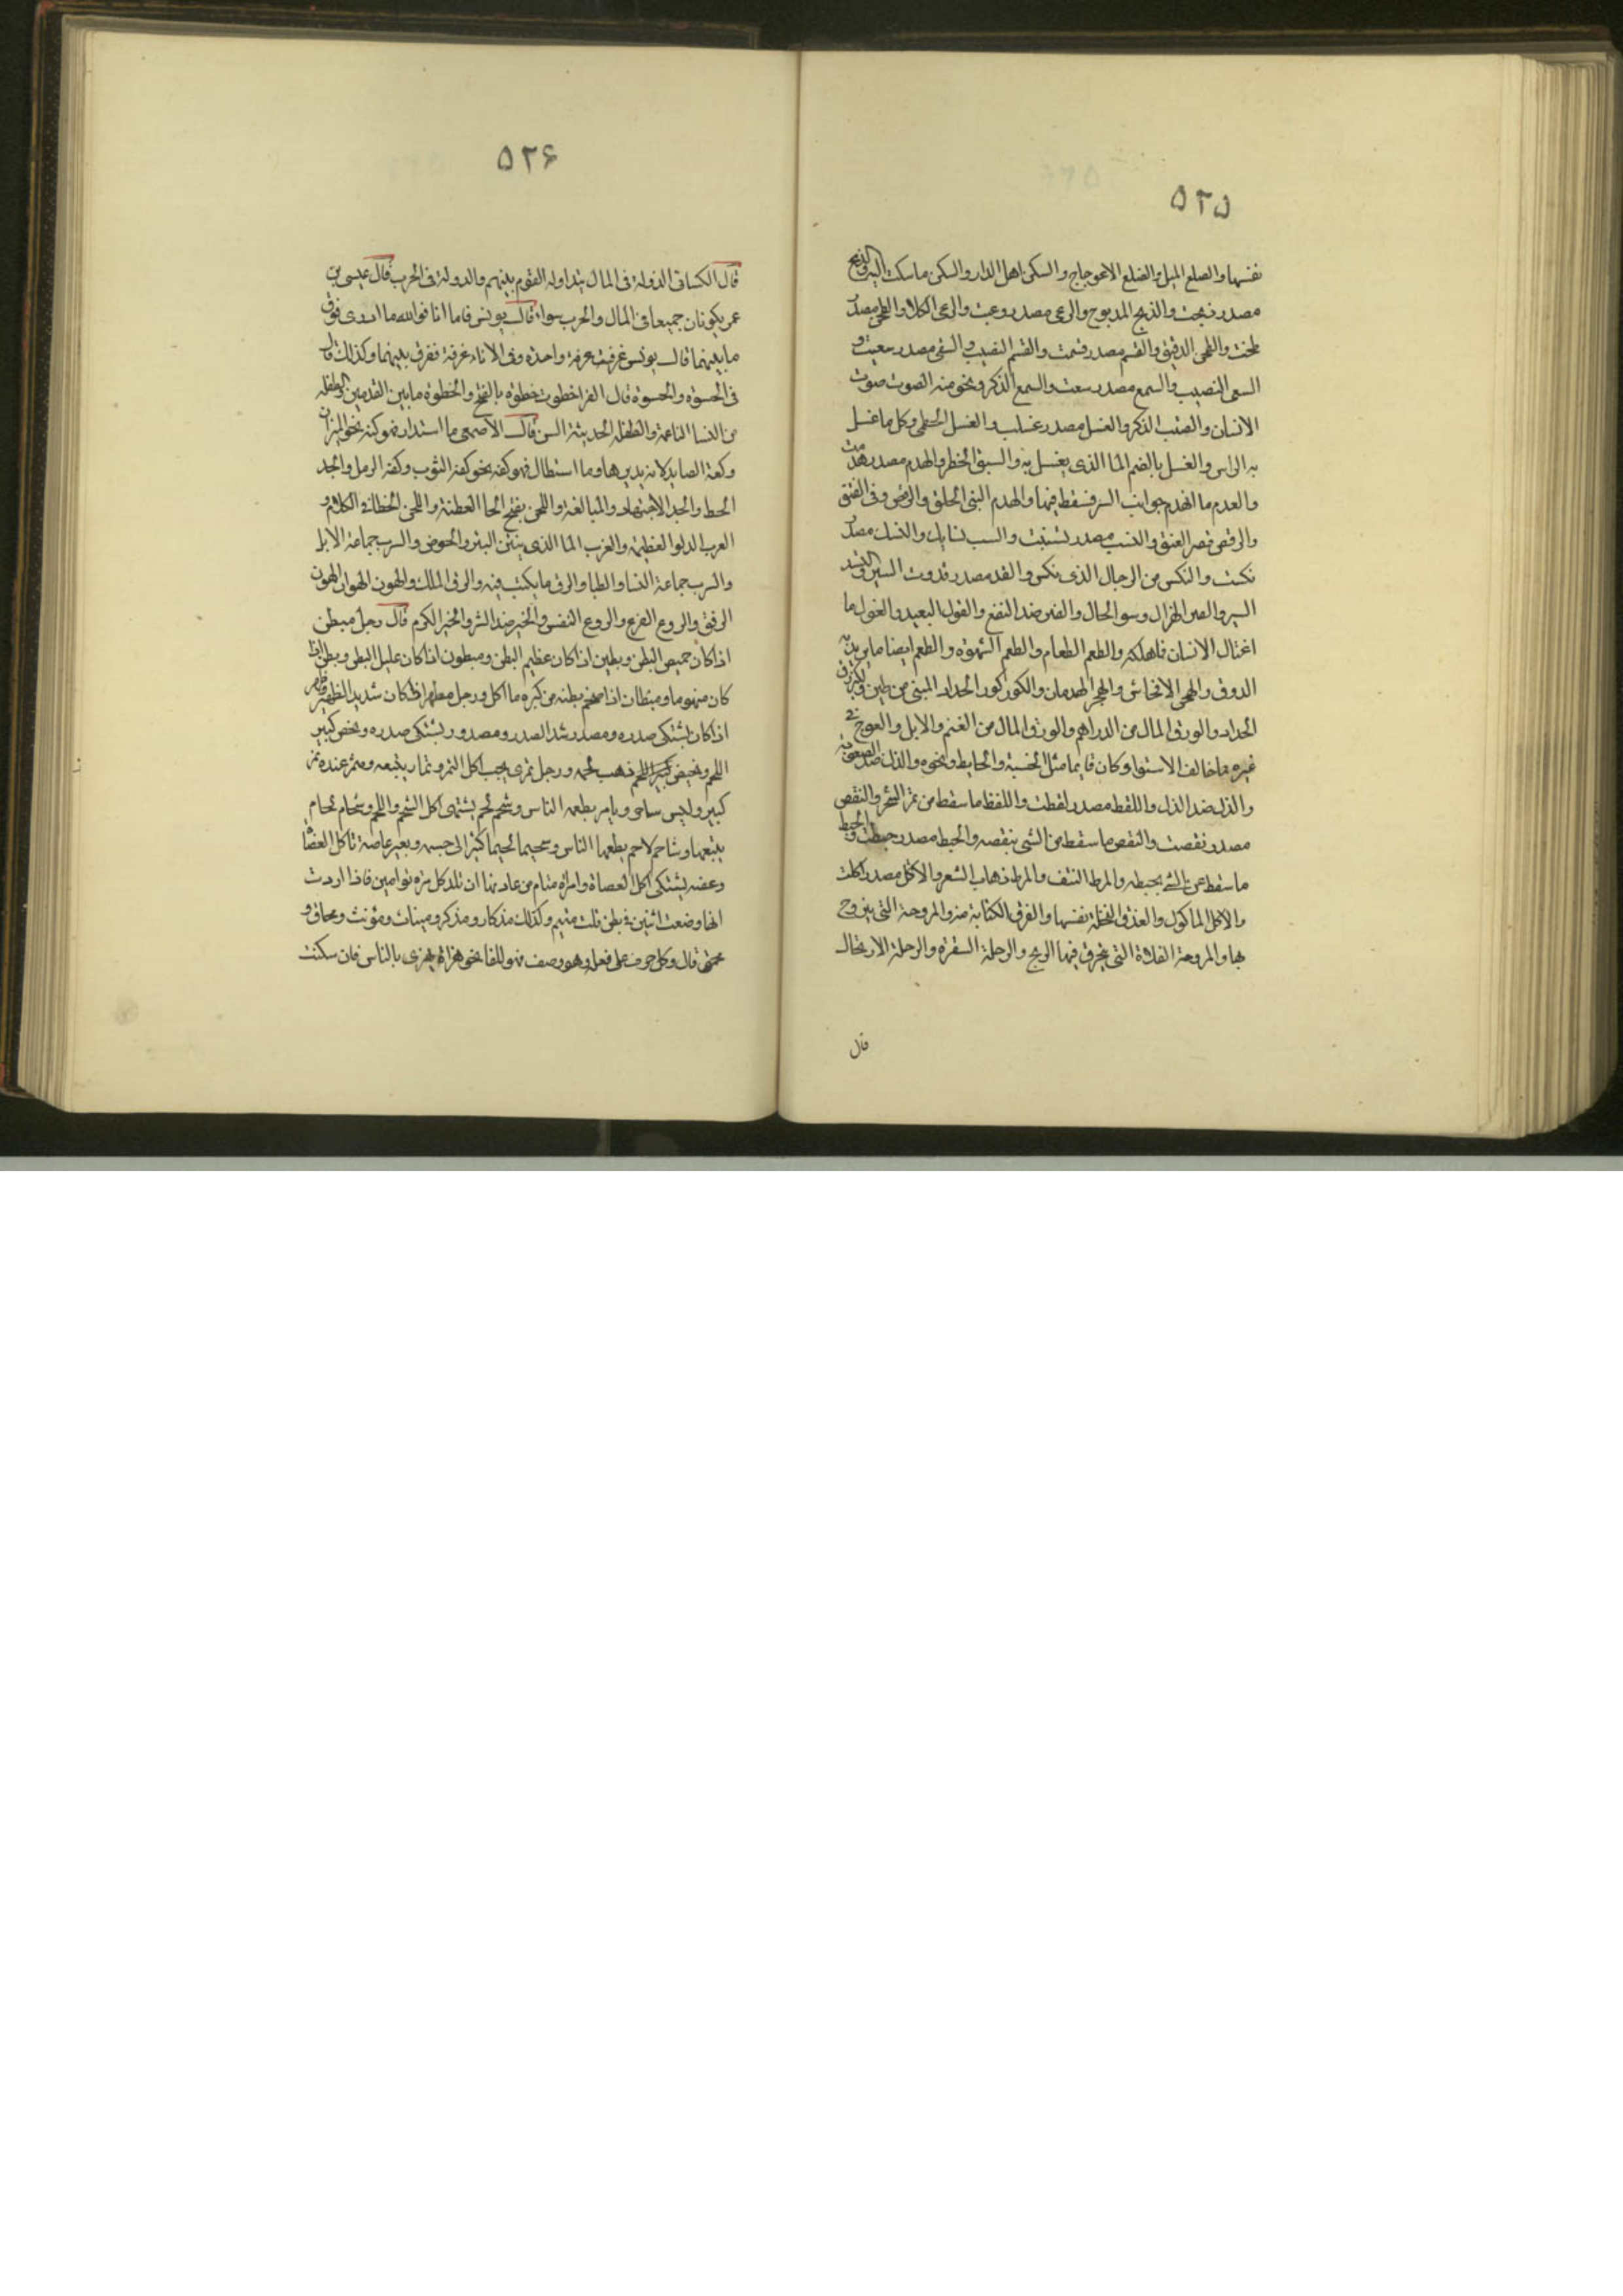 ٥٢٥
نفسها والصلع الميل والضلع الاعوجاج والسكن اهل الدار والسكن ما سكنت اليه والذبح
مصدر ذبحت والذبح المذبوح والرعى مصدر رعيت والرعى الكلا والطحن مصدر
طحنت والطحن الدقيق والقسم مصدر قسمت والقسم النصيب والسقى مصدر سقيت و
السقى النصيب والسمع مصدر سمعت والسمع الذكر ونحو منه الصوت صوت
الانسان والصيت الذكر والغسل مصدر غسلت والغسل الخطمى وكل ما غسل
به الراس والغسل بالضم الما الذى يغسل به والسبق الخطر والهدم مصدر هدمت
والهدم ما انهدم من جوانب البير فسقط فيها والهدم الشى الخلق والوقص دق العنق
والوقص قصر العنق والسب مصدر سببت والسب الذى يسابك والنكس مصدر
نكست والنكس من الرجال الذى نكس والقد مصدر قددت السير والقد
السير والضر الهزال وسو الحال والضر ضد النفع والغول البعد والغول ما
اغتال الانسان فاهلكه والطعم الطعام والطعم الشهوة والطعم ايضا ما يوديه
الذوق والهجر الافحاش والهجر الهذيان والكور كور الحداد المبنى من طين والكير زق
الحداد والورق المال من الدراهم والورق المال من الغنم والابل والعوج فى
غيره ما خالف الاستوا وكان قايما مثل الخشبة والحايط ونحوه والذل ضد الصعوبة
والذل ضد الذل واللقط مصدر لقطت واللقط ما سقط من ثمر الشجر والنقص
مصدر نقصت والنقص ما سقط من الشى ينقصه والخبط مصدر خبطت والخبط
ما سقط عن الشى يخبطه والمرط النتف والمرط ذهاب الشعر والاكل مصدر اكلت
والاكل الماكول والعذق النخلة نفسها والمروحة التى يتروح
بها والمروحة الفلاة التى يخترق فيها الريح والرحلة السفرة والرحلة الارتحال
قال
٥٢٦
قال الكسائى الدولة فى المال يتداوله القوم بينهم والدولة فى الحرب قال عيسى بن
عمر يكونان جميعا فى المال والحرب سواء قال يونس فاما انا فوالله ما ادرى فرق
ما بينهما قال يونس غرفت غرفة واحدة وفى الاناء غرفة ففرق بينهما وكذلك قال
فى الحسوة والحسوة قال الفرا خطوت خطوة بالفتح والخطوة ما بين القدمين والطفلة
من النسا الناعمة والطفلة الحديثة السن قال الاصمعى ما استدار فهو كفة نحو كفة الميزان
وكفة الصايد لانه يديرها وما استطال فهو كفة نحو كفة الثوب وكفة الرمل والجد
الحظ والجد الاجتهاد والمبالغة واللحن بفتح الحا الفطنة واللحن الخطا فى الكلام و
الغرب الدلو العظيمة والغرب الما الذى بين البئر والحوض والسرب جماعة الابل
والسرب جماعة النسا والظبا والرق ما يكتب فيه والرق الملك والهون الهوان والهون
الرفق والروع الفزع والروع النفس والخير ضد الشر والخير الكرم قال رجل مبطن
اذا كان خميص البطن وبطين اذا كان عظيم البطن ومبطون اذا كان عليل البطن وبطن اذا
كان منهوما ومبطان اذا ضخم بطنه من كثرة ما اكل ورجل مظهر اذا كان شديد الظهر وظهر
اذا كان يشتكى ظهره ومصدر شديد الصدر ومصدور يشتكى صدره ونحض كثير
اللحم ونحيض ذهب لحمه ورجل تمرى يحب اكل التمر وتمار يبيعه ومتمر عنده تمر
كثير وليس بتاجر وتامر يطعمه الناس وشحم لحم يشتهى اكل الشحم واللحم وشحام لحام
يبيعهما وشاحم لاحم يطعمهما الناس وشحيم لحيم كثرا فى جسمه وبعير عاضه تاكل العضاه
وعضه يشتكى اكل العضاة وامراة متئام من عادتها ان تلد كل مرة توامين فاذا اردت
انها وضعت اثنين فى بطن قلت متئم وكذلك مذكار ومذكر ومينات ومؤنث ومحماق و
محمق قال وكل حرف على فعلة وهو وصف فهو للفاعل نحو هزاة يهزى بالناس فان سكنت